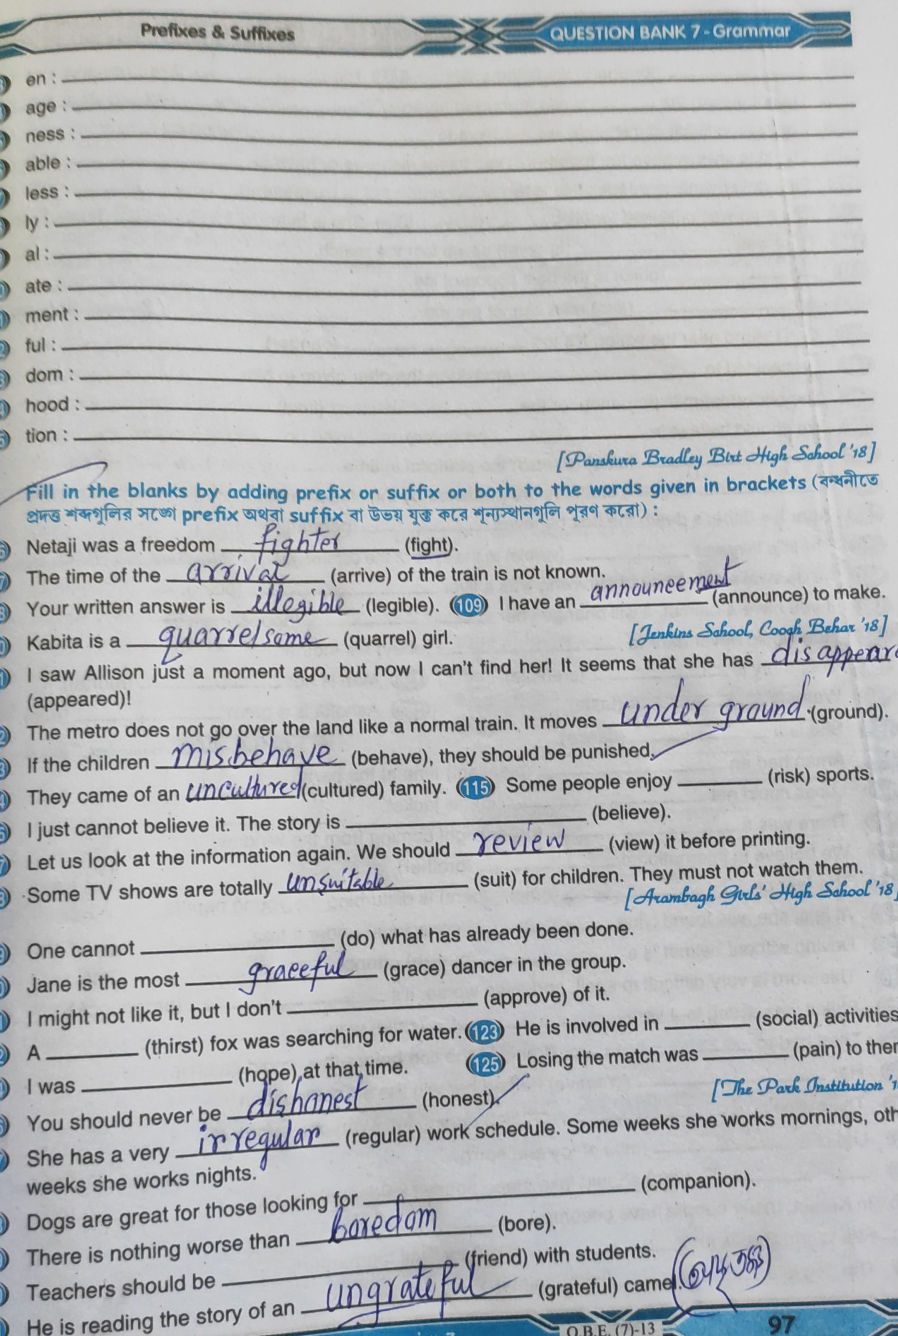 Prefixes & Suffixes QUESTION BANK 7 - Grammar
en :
age :
ness :
able :
less :
ly :
al :
ate :
ment :
ful :
dom :
hood :
tion :
[Panskura Bradley Birt High School '18]
Fill in the blanks by adding prefix or suffix or both to the words given in brackets (বন্ধনীতে
প্রদত্ত শব্দগুলির সঙ্গে prefix অথবা suffix বা উভয় যুক্ত করে শূন্যস্থানগুলি পূরণ করো) :
Netaji was a freedom fighter (fight).
The time of the arrival (arrive) of the train is not known.
Your written answer is illegible (legible). 109 I have an announcement (announce) to make.
Kabita is a quarrelsome (quarrel) girl. [Jenkins School, Cooch Behar '18]
I saw Allison just a moment ago, but now I can't find her! It seems that she has disappear
(appeared)!
The metro does not go over the land like a normal train. It moves under ground (ground).
If the children misbehave (behave), they should be punished.
They came of an uncultured (cultured) family. 115 Some people enjoy (risk) sports.
I just cannot believe it. The story is (believe).
Let us look at the information again. We should review (view) it before printing.
Some TV shows are totally unsuitable (suit) for children. They must not watch them.
[Arambagh Girls' High School '18
One cannot (do) what has already been done.
Jane is the most graceful (grace) dancer in the group.
I might not like it, but I don't (approve) of it.
A (thirst) fox was searching for water. 123 He is involved in (social) activities
I was (hope) at that time. 125 Losing the match was (pain) to ther
[The Park Institution '1
You should never be dishanest (honest).
She has a very irregular (regular) work schedule. Some weeks she works mornings, oth
weeks she works nights.
Dogs are great for those looking for (companion).
There is nothing worse than boredom (bore).
Teachers should be (friend) with students.
He is reading the story of an ungrateful (grateful) camel
Q.B.E. (7)-13 97